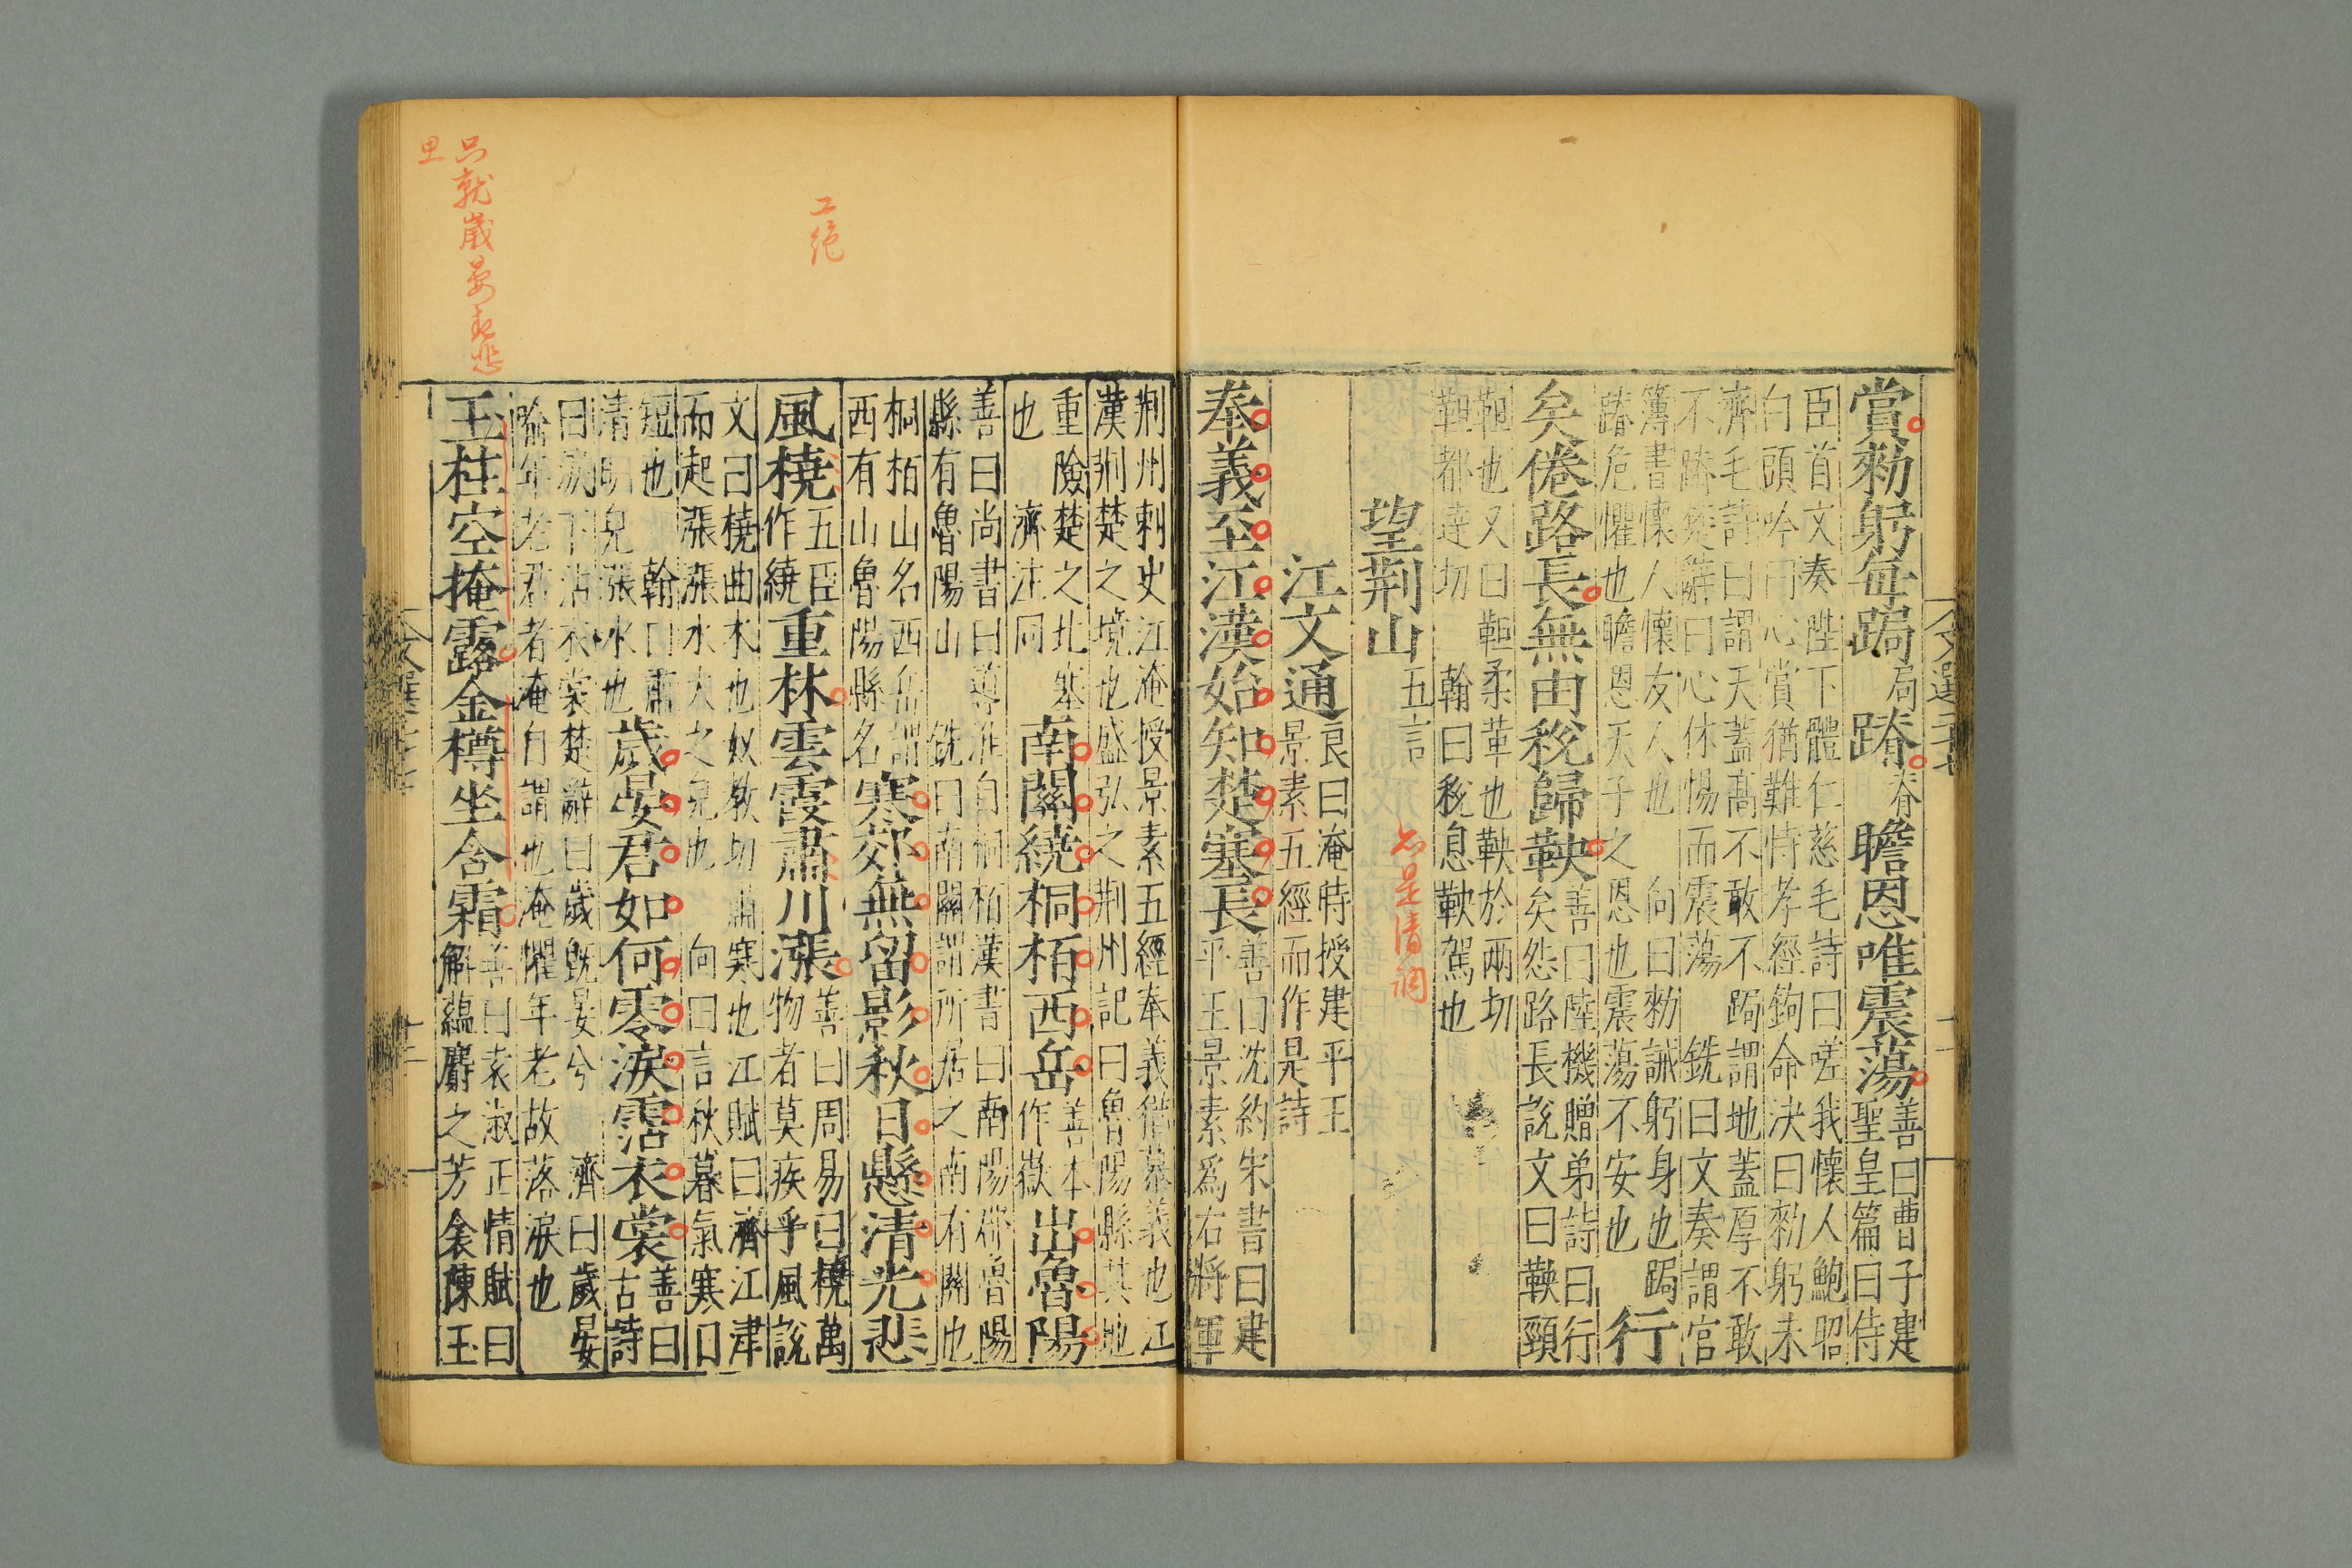 文選二十七
賞勑躬每跼局踳春瞻恩唯震蕩善曰曹子建
聖皇篇曰侍
臣首文奏陛下體仁慈毛詩曰嗟我懷人鮑昭
白頭吟曰心賞猶難恃孝經鉤命决曰勑躬未
齊毛詩曰謂天蓋髙不敢不跼謂地蓋厚不敢
不蹐楚辭曰心怵惕而震蕩 銑曰文奏謂官
簿書懷人懷友人也 向曰勑誡躬身也跼
踳危懼也瞻恩天子之恩也震蕩不安也
行
矣倦路長無由稅歸鞅善曰陸機贈弟詩曰行
矣怨路長説文曰鞅頸
靼也又曰靼柔革也鞅於兩切
靼都達切 翰曰稅息鞅駕也
望荆山五言
只是清調
江文通良曰淹時授建平王
景素五經而作是詩
奉義至江漢始知楚塞長善曰沈約宋書曰建
平王景素爲右將軍
荆州刺史江淹授景素五經奉義猶慕義也江
漢荆楚之境也盛弘之荆州記曰魯陽縣其地
重險楚之北塞
也 濟注同
南關繞桐栢西岳善本
作嶽
出魯陽
善曰尚書曰導淮自桐栢漢書曰南陽郡魯陽
縣有魯陽山 銑曰南關謂所居之南有關也
桐栢山名西岳謂
西有山魯陽縣名
寒郊無留影秋日懸清光悲
工絕
風橈五臣
作繞
重林雲霞肅川漲善曰周易曰橈萬
物者莫疾乎風説
文曰橈曲木也奴教切肅寒也江賦曰濟江津
而起漲漲水大之皃也 向曰言秋暮氣寒日
短也 翰曰肅
清明皃漲水也
歲晏君如何零淚霑衣裳善曰
古詩
曰淚下沾衣裳楚辭曰歲旣晏兮 濟曰歲晏
喻年老君者淹自謂也淹懼年老故落淚也
只就歲晏
玉柱空掩露金樽坐含霜善曰袁淑正情賦曰
解蘊麝之芳衾陳玉